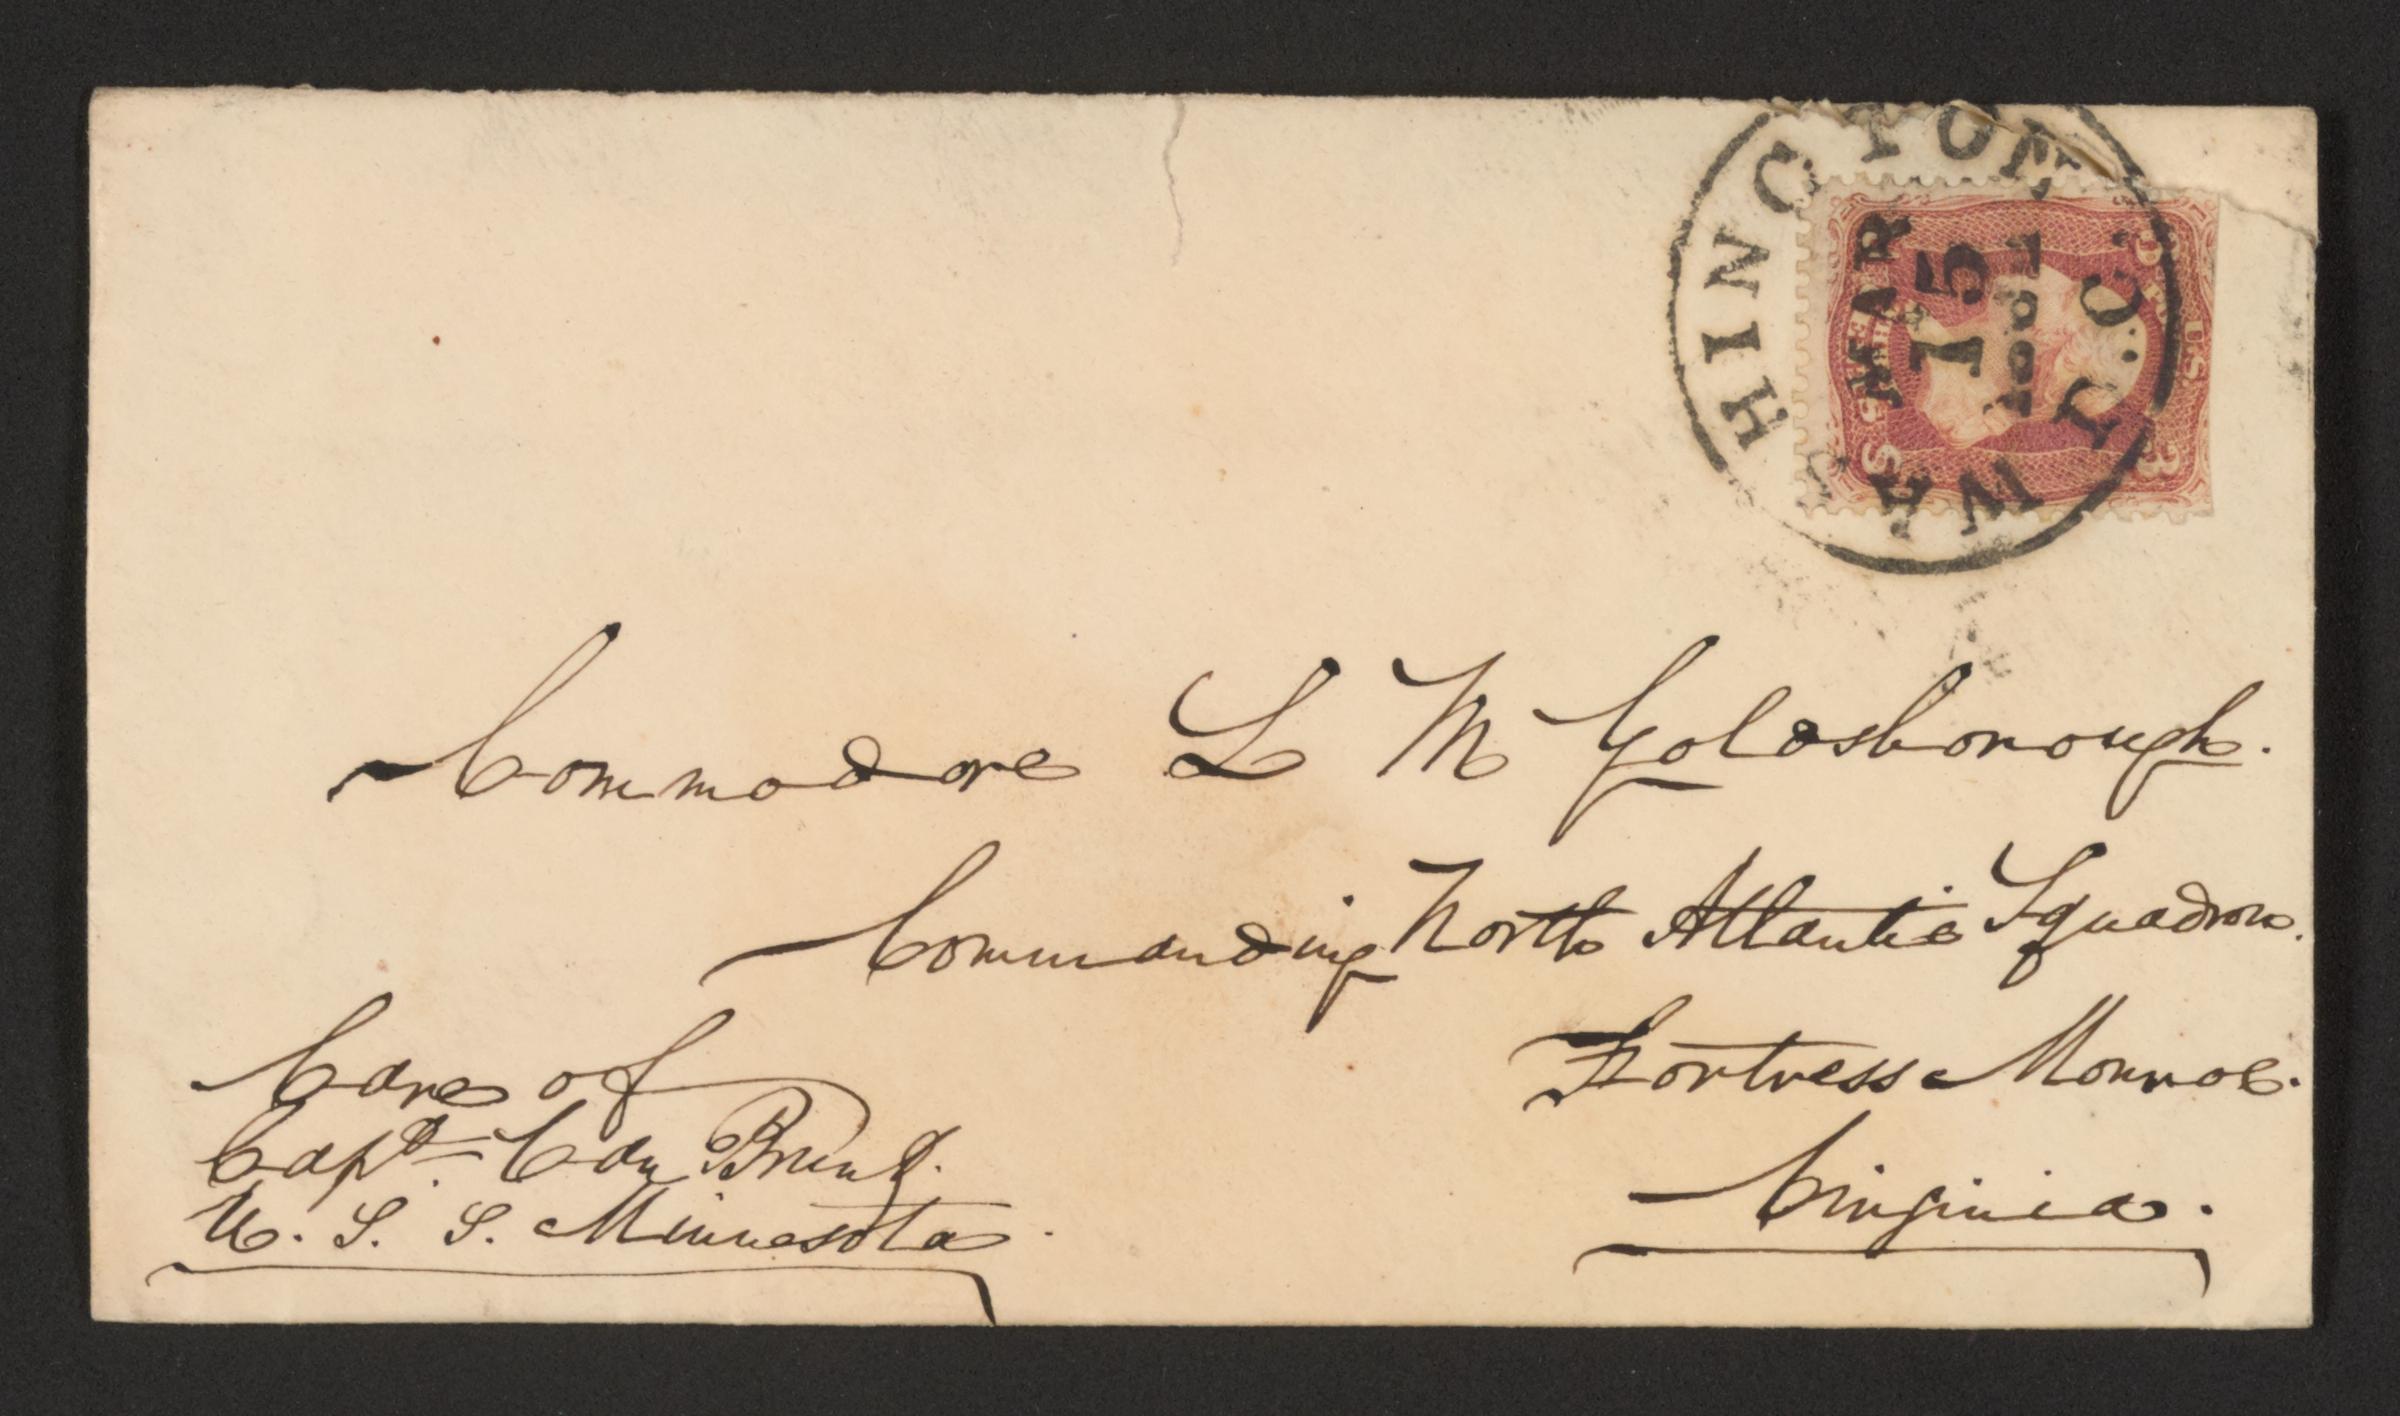 WASHINGTON D.C.
MAR
15
U.S.
3
Commodore L M Goldsborough.
Commanding North Atlantic Squadron.
Fortress Monroe.
Virginia.
Care of
Capt. Van Brunt.
U. S. S. Minnesota.